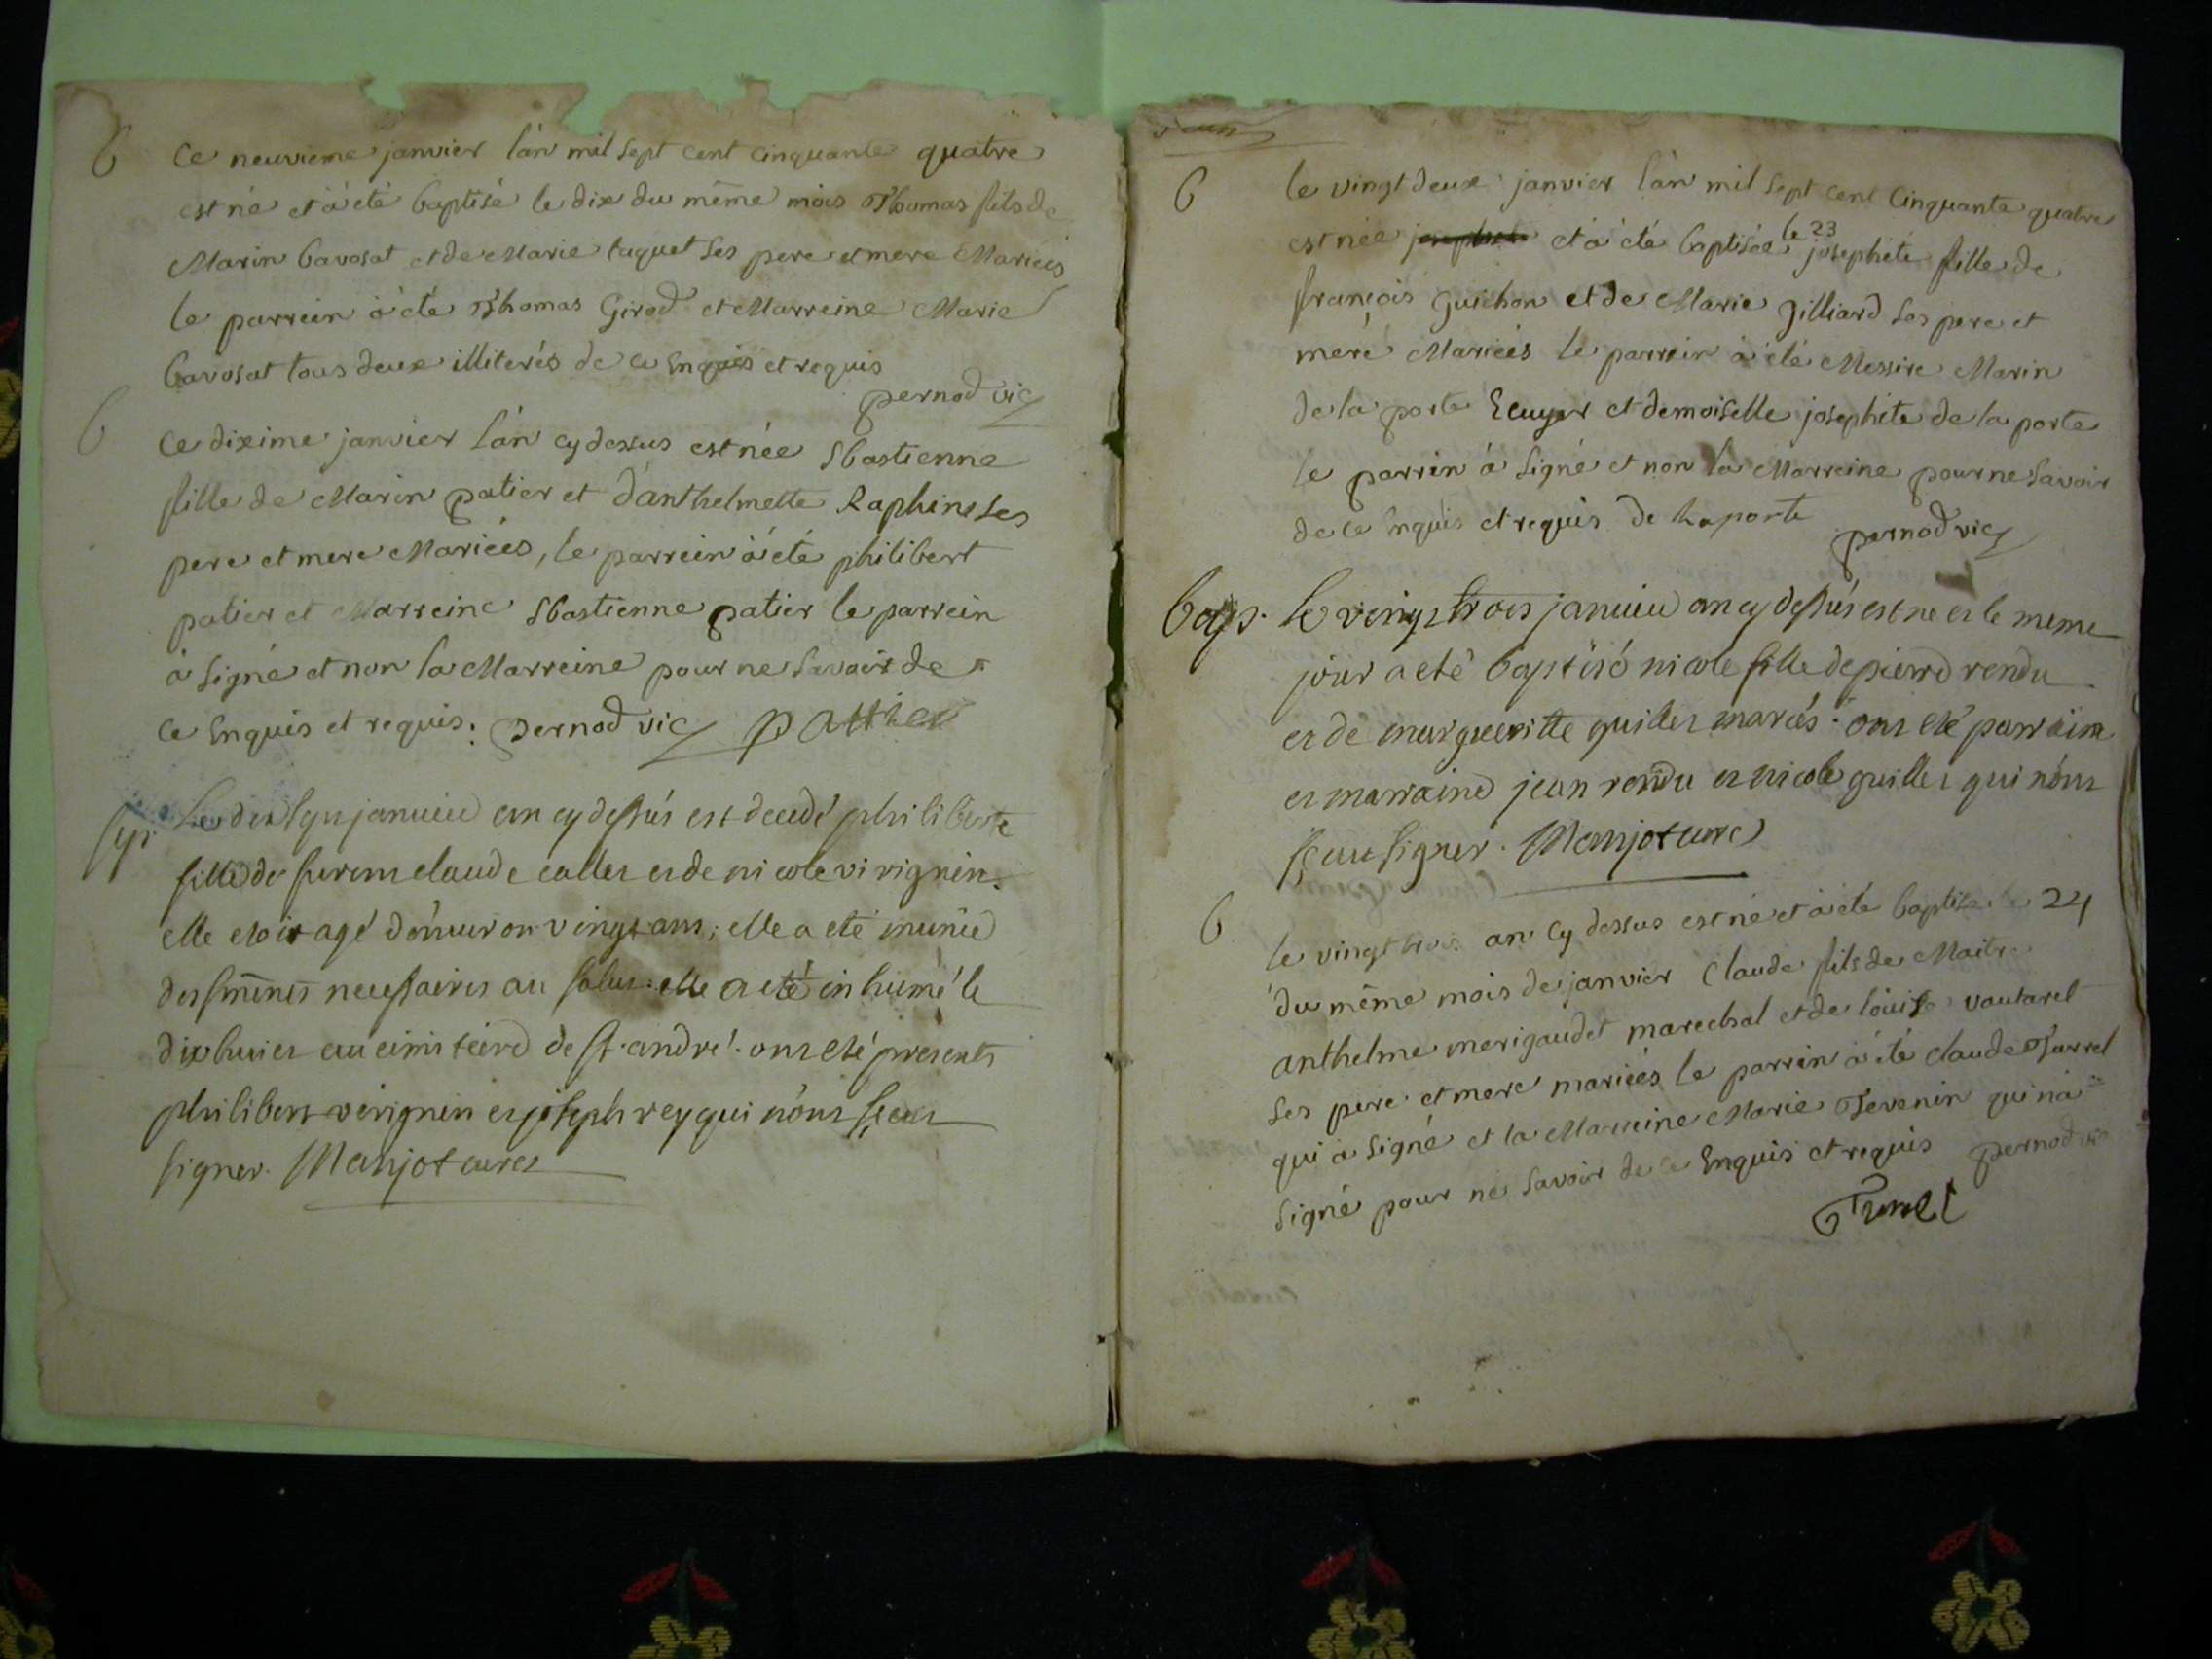 B Ce neuvieme janvier l'an mil sept cent cinquante quatre
est né et à été baptisé le dix du même mois Thomas fils de
Marin bavosat et de Marie tuquet ses pere et mere Mariées
le parrein à été Thomas Girod et Marreine Marie
bavosat tous deux illiterés de ce Enquis et requis
pernod vic
B Ce dixime janvier l'an cy dessus est née Sbastienne
fille de Marin patier et d'anthelmette Raphin ses
pere et mere Mariées, le parrein à été philibert
patier et Marreine Sbastienne patier le parrein
à signé et non la Marreine pour ne savoir de
ce Enquis et requis. pernod vic patthier
Sep. Le dixsept janvier an cy dessus est decedé philiberte
fille de furent claude callet et de nicole virignin.
elle etoit agé d'environ vingt ans; elle a eté munie
des sacrements necessaires au salut. elle a eté inhumé le
dixhuict au cimitiere de st. andré. ont eté presents
philibert virignin et joseph rey qui n'ont sceut
signer. Manjot curé
B le vingt deux janvier l'an mil sept cent cinquante quatre
est née josephete et à été baptisée le 23 josephéte fille de
françois guichon et de Marie Jilliard ses pere et
mere Mariées le parrein à été Messire Marin
de la porte Ecuyer et demoiselle josephéte de la porte
le parrin à signé et non la Marreine pour ne savoir
de ce Enquis et requis De Laporte pernod vic
Bap. Le vingt trois janvier an cy dessus est ne et le meme
jour a eté baptisé nicole fille de pierre rendu
et de margueritte guillet mariés. ont eté parrain
et marraine jean rendu et nicole guillet qui n'ont
sceut signer. Manjot curé
B le vingt trois an cy dessus est né et à été baptisé le 24
du même mois de janvier Claude fils de Maitre
anthelme merigaudet marechal et de loüise vautaret
ses pere et mere mariées le parrin à été claude Turrel
qui à signé et la Marreine Marie Tevenin qui n'a
signé pour ne savoir de ce Enquis et requis pernod vic